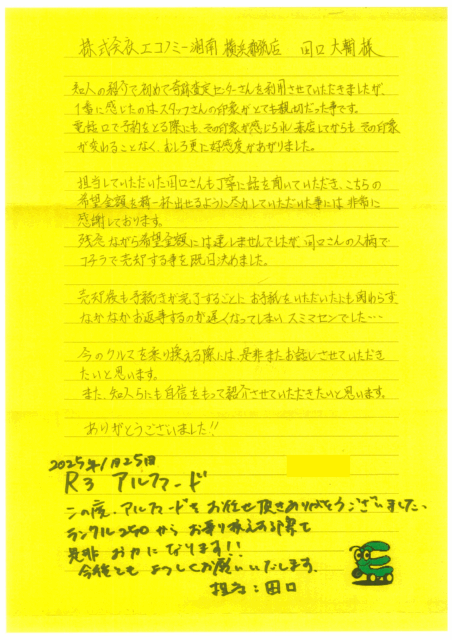 株式会社エコノミー湘南 横浜都筑店 田口 大輔 様
知人の紹介で初めて奇跡査定センターさんを利用させていただきましたが、
1番に感じたのはスタッフさんの印象がとても親切だった事です。
電話口で予約をとる際にも、その印象が感じられ 来店してからも その印象
が変わることなく、むしろ更に好感度があがりました。
担当していただいた田口さんも丁寧に話を聞いていただき、こちらの
希望金額を精一杯出せるように尽力していただいた事には非常に
感謝しております。
残念ながら希望金額には達しませんでしたが、田口さんの人柄で
コチラで売却する事を即日決めました。
売却後も手続きが完了するごとに お手紙をいただいたにも関わらず
なかなかお返事するのが遅くなってしまい スミマセンでした…
今のクルマを乗り換える際には、是非またお話しさせていただき
たいと思います。
また、知人らにも自信をもって紹介させていただきたいと思います。
ありがとうございました!!
2025年1月25日
R3 アルファード
この度、アルファードをお任せ頂きありがとうございました、
ランクル250からお乗り換えある際も
是非 お力になります!!
今後とも よろしくお願いいたします。
担当:田口